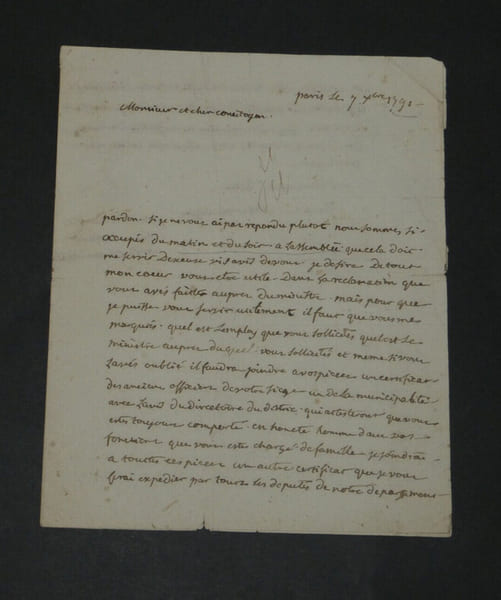 paris Le 7 xbre 1791
Monsieur et cher concitoyen
pardon si je ne vous ai pas repondu plutot nous sommes si
occupés du matin et du soir a Lassemblée que cela doit
me servir Dexcuse vis avis de vous je desire De tout
mon coeur vous etre utile Dans La reclamation que
vous avés faitte aupres du ministre mais pour que
je puisse vous servir utilement il faut que vous me
marquiés quel est Lemploy que vous sollicités quel est Le
ministre aupres du quel vous sollicités et meme si vous
Lavés oublié il faudra joindre a vos pieces un certificat
des anciens officiers de votre siege ou de La municipalité
avec Lavis du directoire du district qui attesteront que vous
etes toujour comporté en honete homme dans vos
fonctions que vous etes chargé de famille je joindrai
a touttes ces pieces un autre certificat que je vous
ferai expedier par tous Les deputés de notre departement